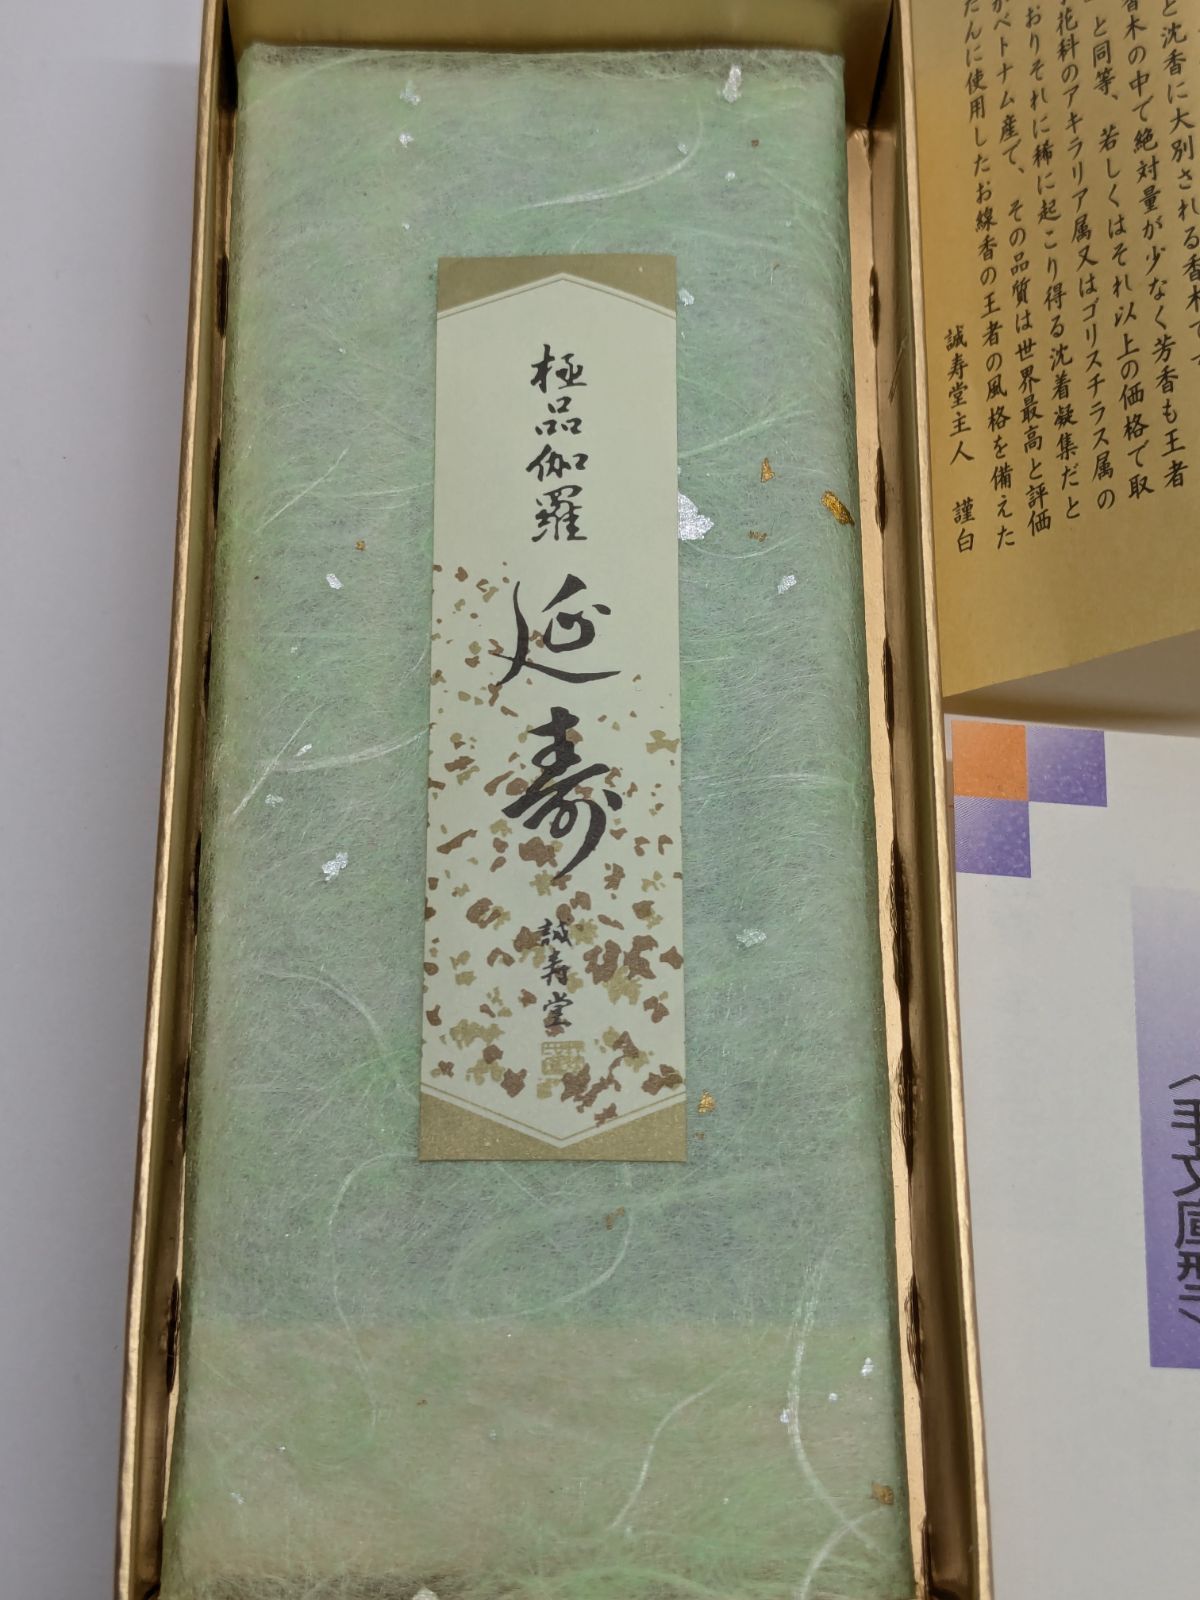 極品伽羅
延寿
誠寿堂
と沈香に大別される香木で
香木の中で絶対量が少なく芳香も王者
と同等、若しくはそれ以上の価格で取
花科のアキラリア属又はゴリスチラス属の
おりそれに稀に起こり得る沈着凝集だと
がベトナム産で、その品質は世界最高と評価
たんに使用したお線香の王者の風格を備えた
誠寿堂主人 謹白
〈手文庫型〉